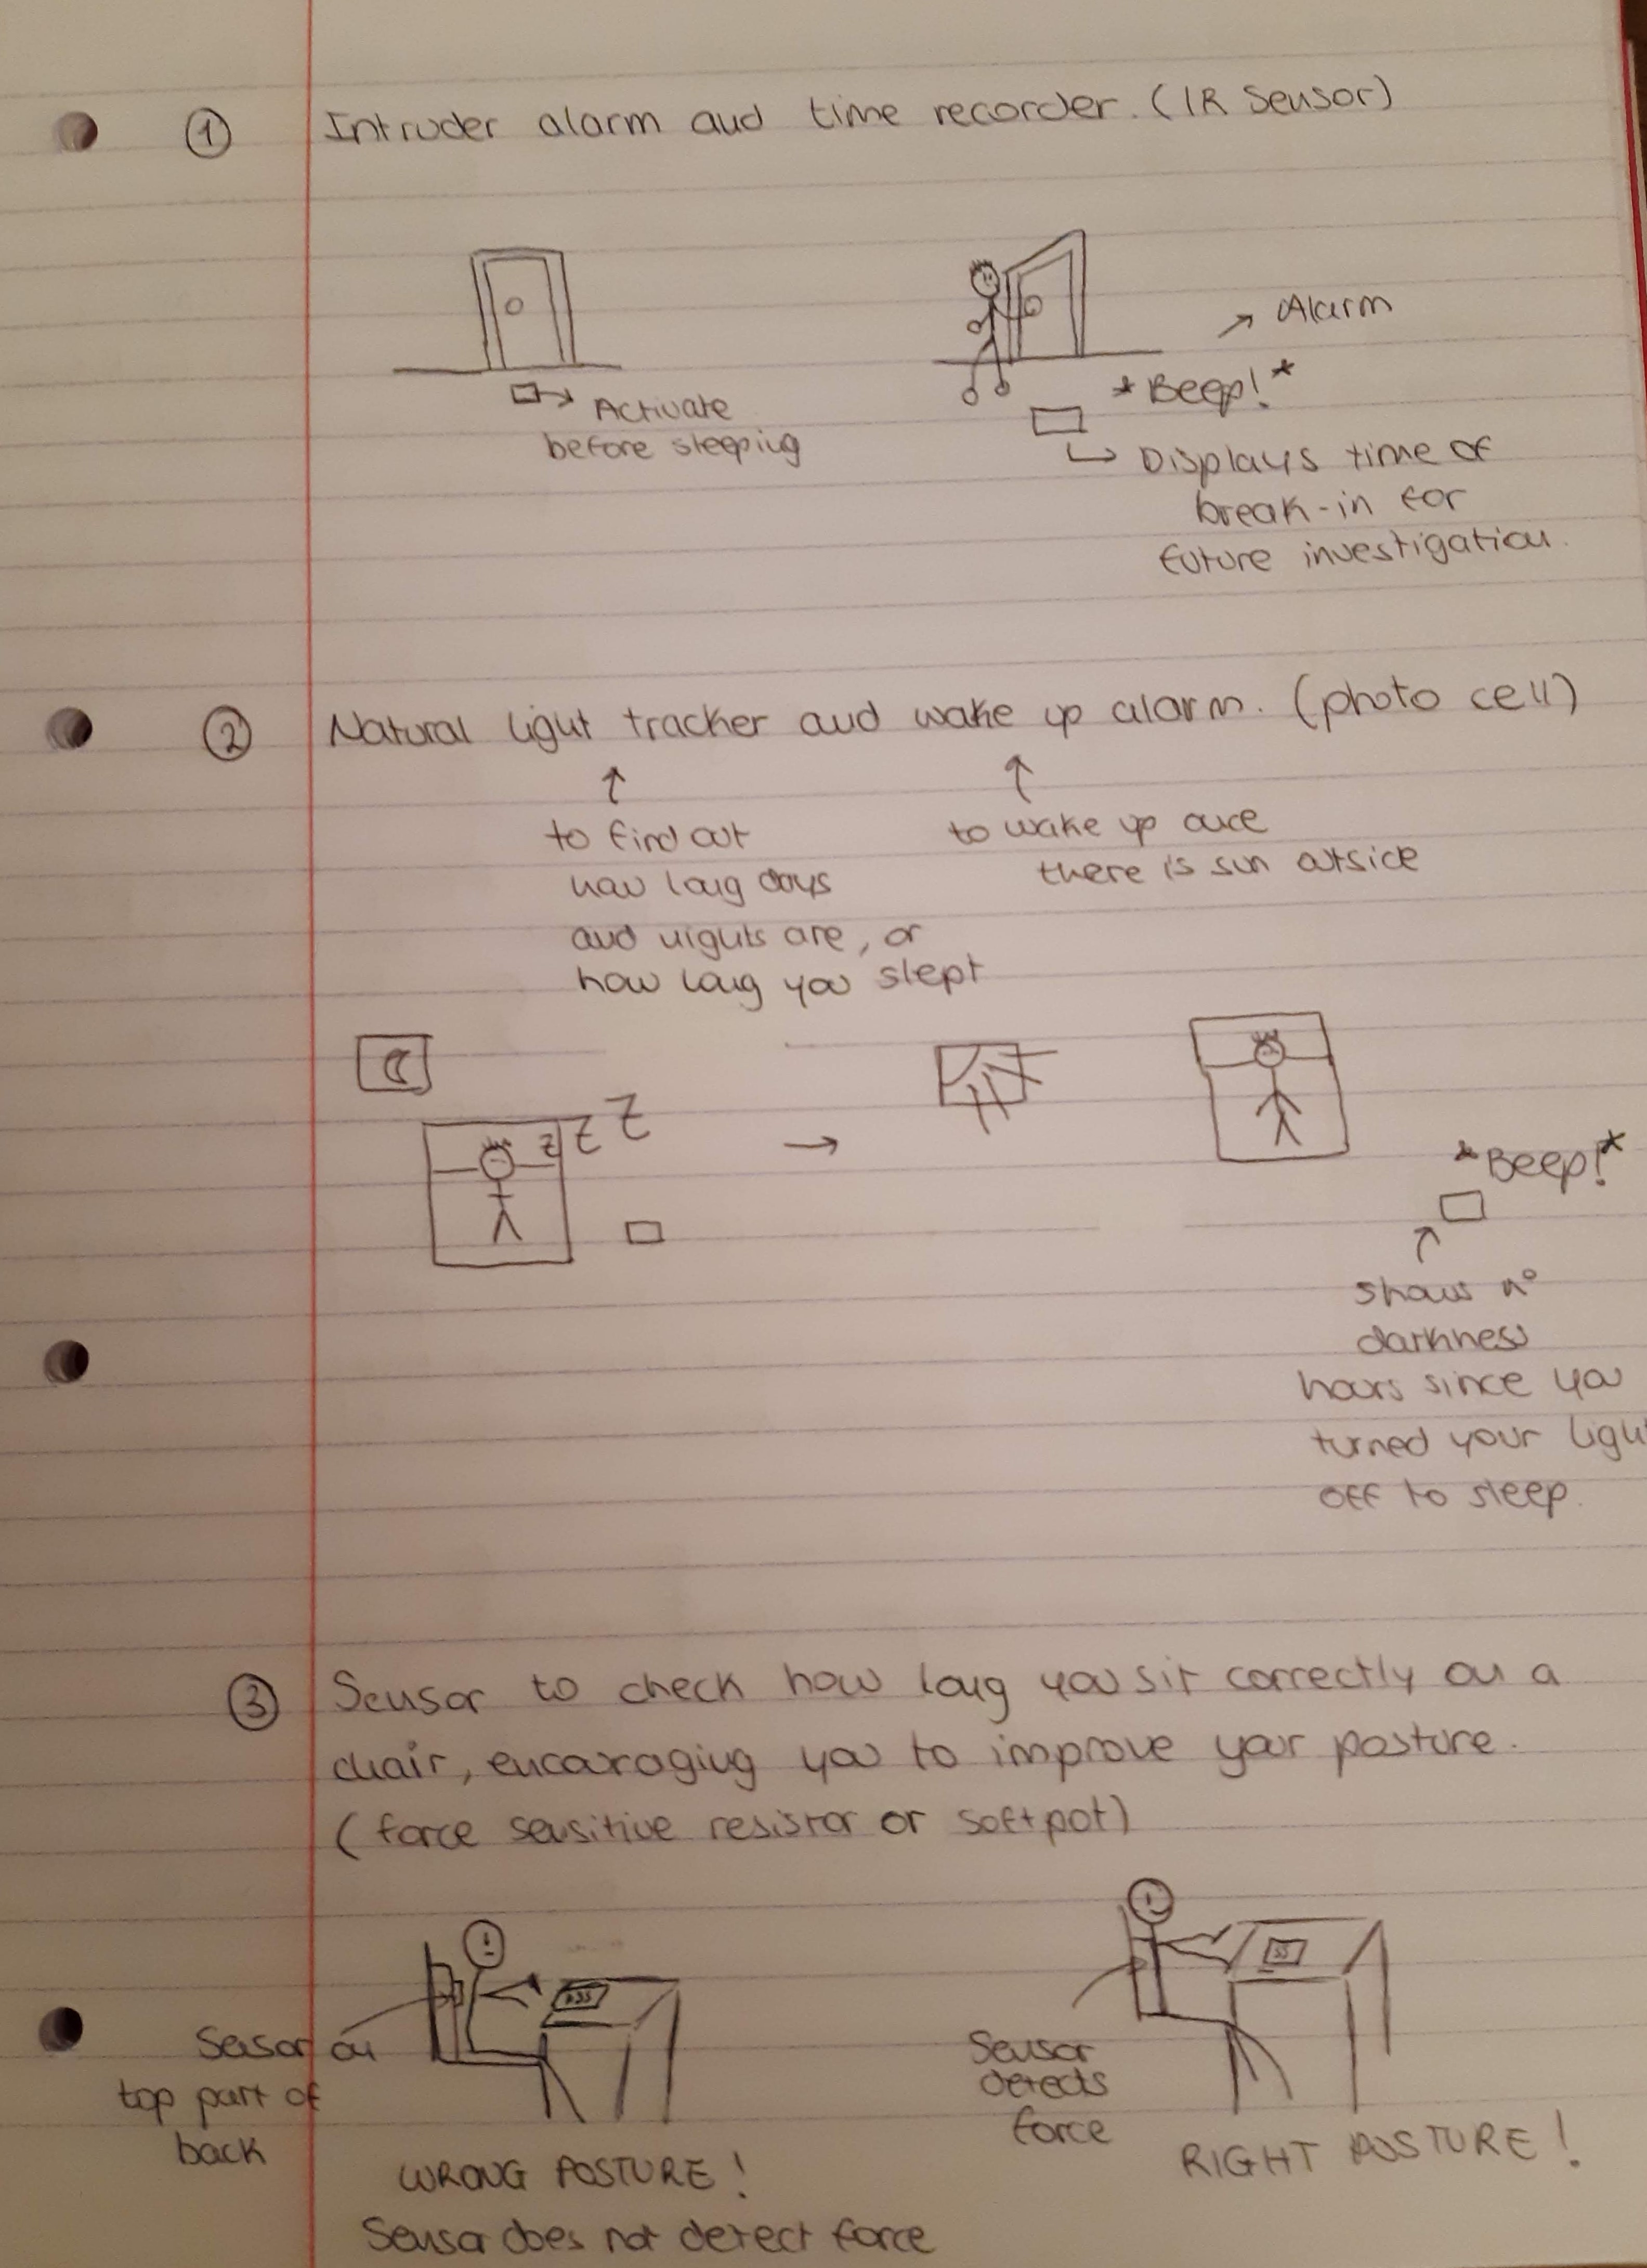 ① Intruder alarm and time recorder. (IR Sensor)
Alarm
*Beep!*
Activate
before sleeping
Displays time of
break-in for
future investigation.
② Natural light tracker and wake up alarm. (photo cell)
to find out
how long days
and nights are, or
how long you slept
to wake up once
there is sun outside
z z z
*Beep!*
Shows nº
darkness
hours since you
turned your light
off to sleep.
③ Sensor to check how long you sit correctly on a
chair, encouraging you to improve your posture.
(force sensitive resistor or softpot)
Sensor on
top part of
back
WRONG POSTURE!
Sensor does not detect force
Sensor
detects
force
RIGHT POSTURE!